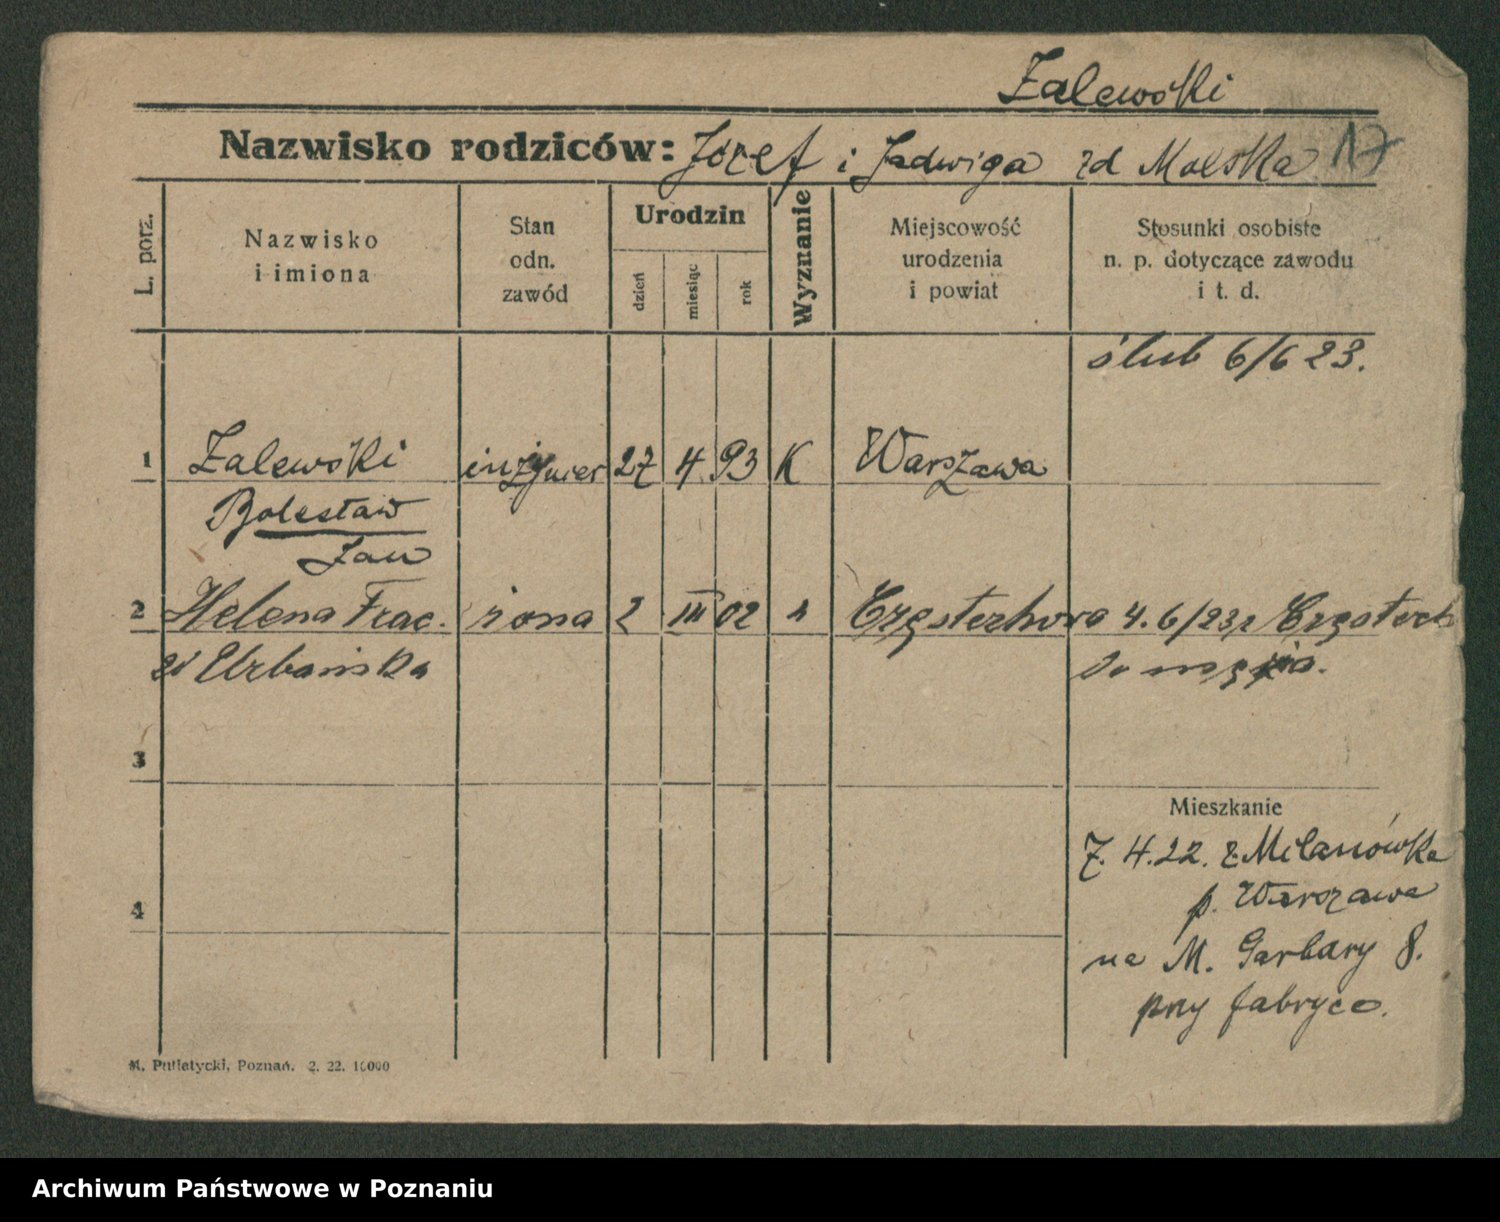 Zalewski
Nazwisko rodziców: Józef i Jadwiga zd Molska 17
L. porz.
Nazwisko i imiona
Stan odn. zawód
Urodzin
dzień miesiąc rok
Wyznanie
Miejscowość urodzenia i powiat
Stosunki osobiste n. p. dotyczące zawodu i t. d.
ślub 6/6 23.
1 Zalewski inżynier 27 4 93 K Warszawa
Bolesław
Jan
2 Helena Frac. żona 2 III 02 Częstochowa 4.6/23 z Częstoch
zd Urbańska do męża.
3
Mieszkanie
7. 4.22. z Milanówka
p. Warszawa
4
na M. Garbary 8.
przy fabryce.
M. Putiatycki, Poznań. 2. 22. 10000
Archiwum Państwowe w Poznaniu